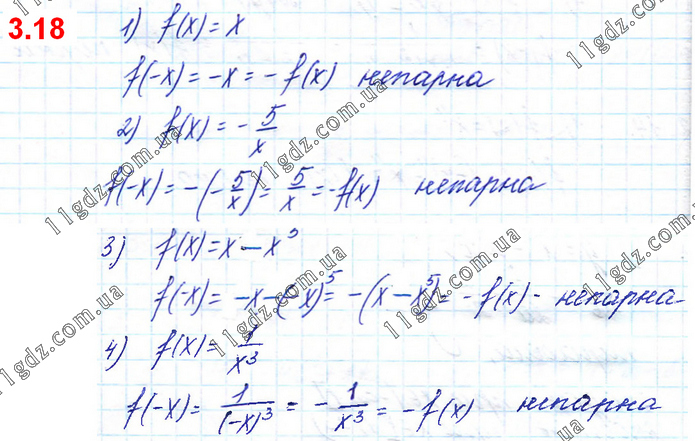 3.18
1) f(x) = x
f(-x) = -x = - f(x) непарна
2) f(x) = - 5/x
f(-x) = -(-5/x) = 5/x = -f(x) непарна
3) f(x) = x - x⁵
f(-x) = -x - (-x)⁵ = -(x - x⁵) = - f(x) - непарна
4) f(x) = 1/x³
f(-x) = 1/(-x)³ = - 1/x³ = - f(x) непарна
11gdz.com.ua
11gdz.com.ua
11gdz.com.ua
11gdz.com.ua
11gdz.com.ua
11gdz.com.ua
11gdz.com.ua